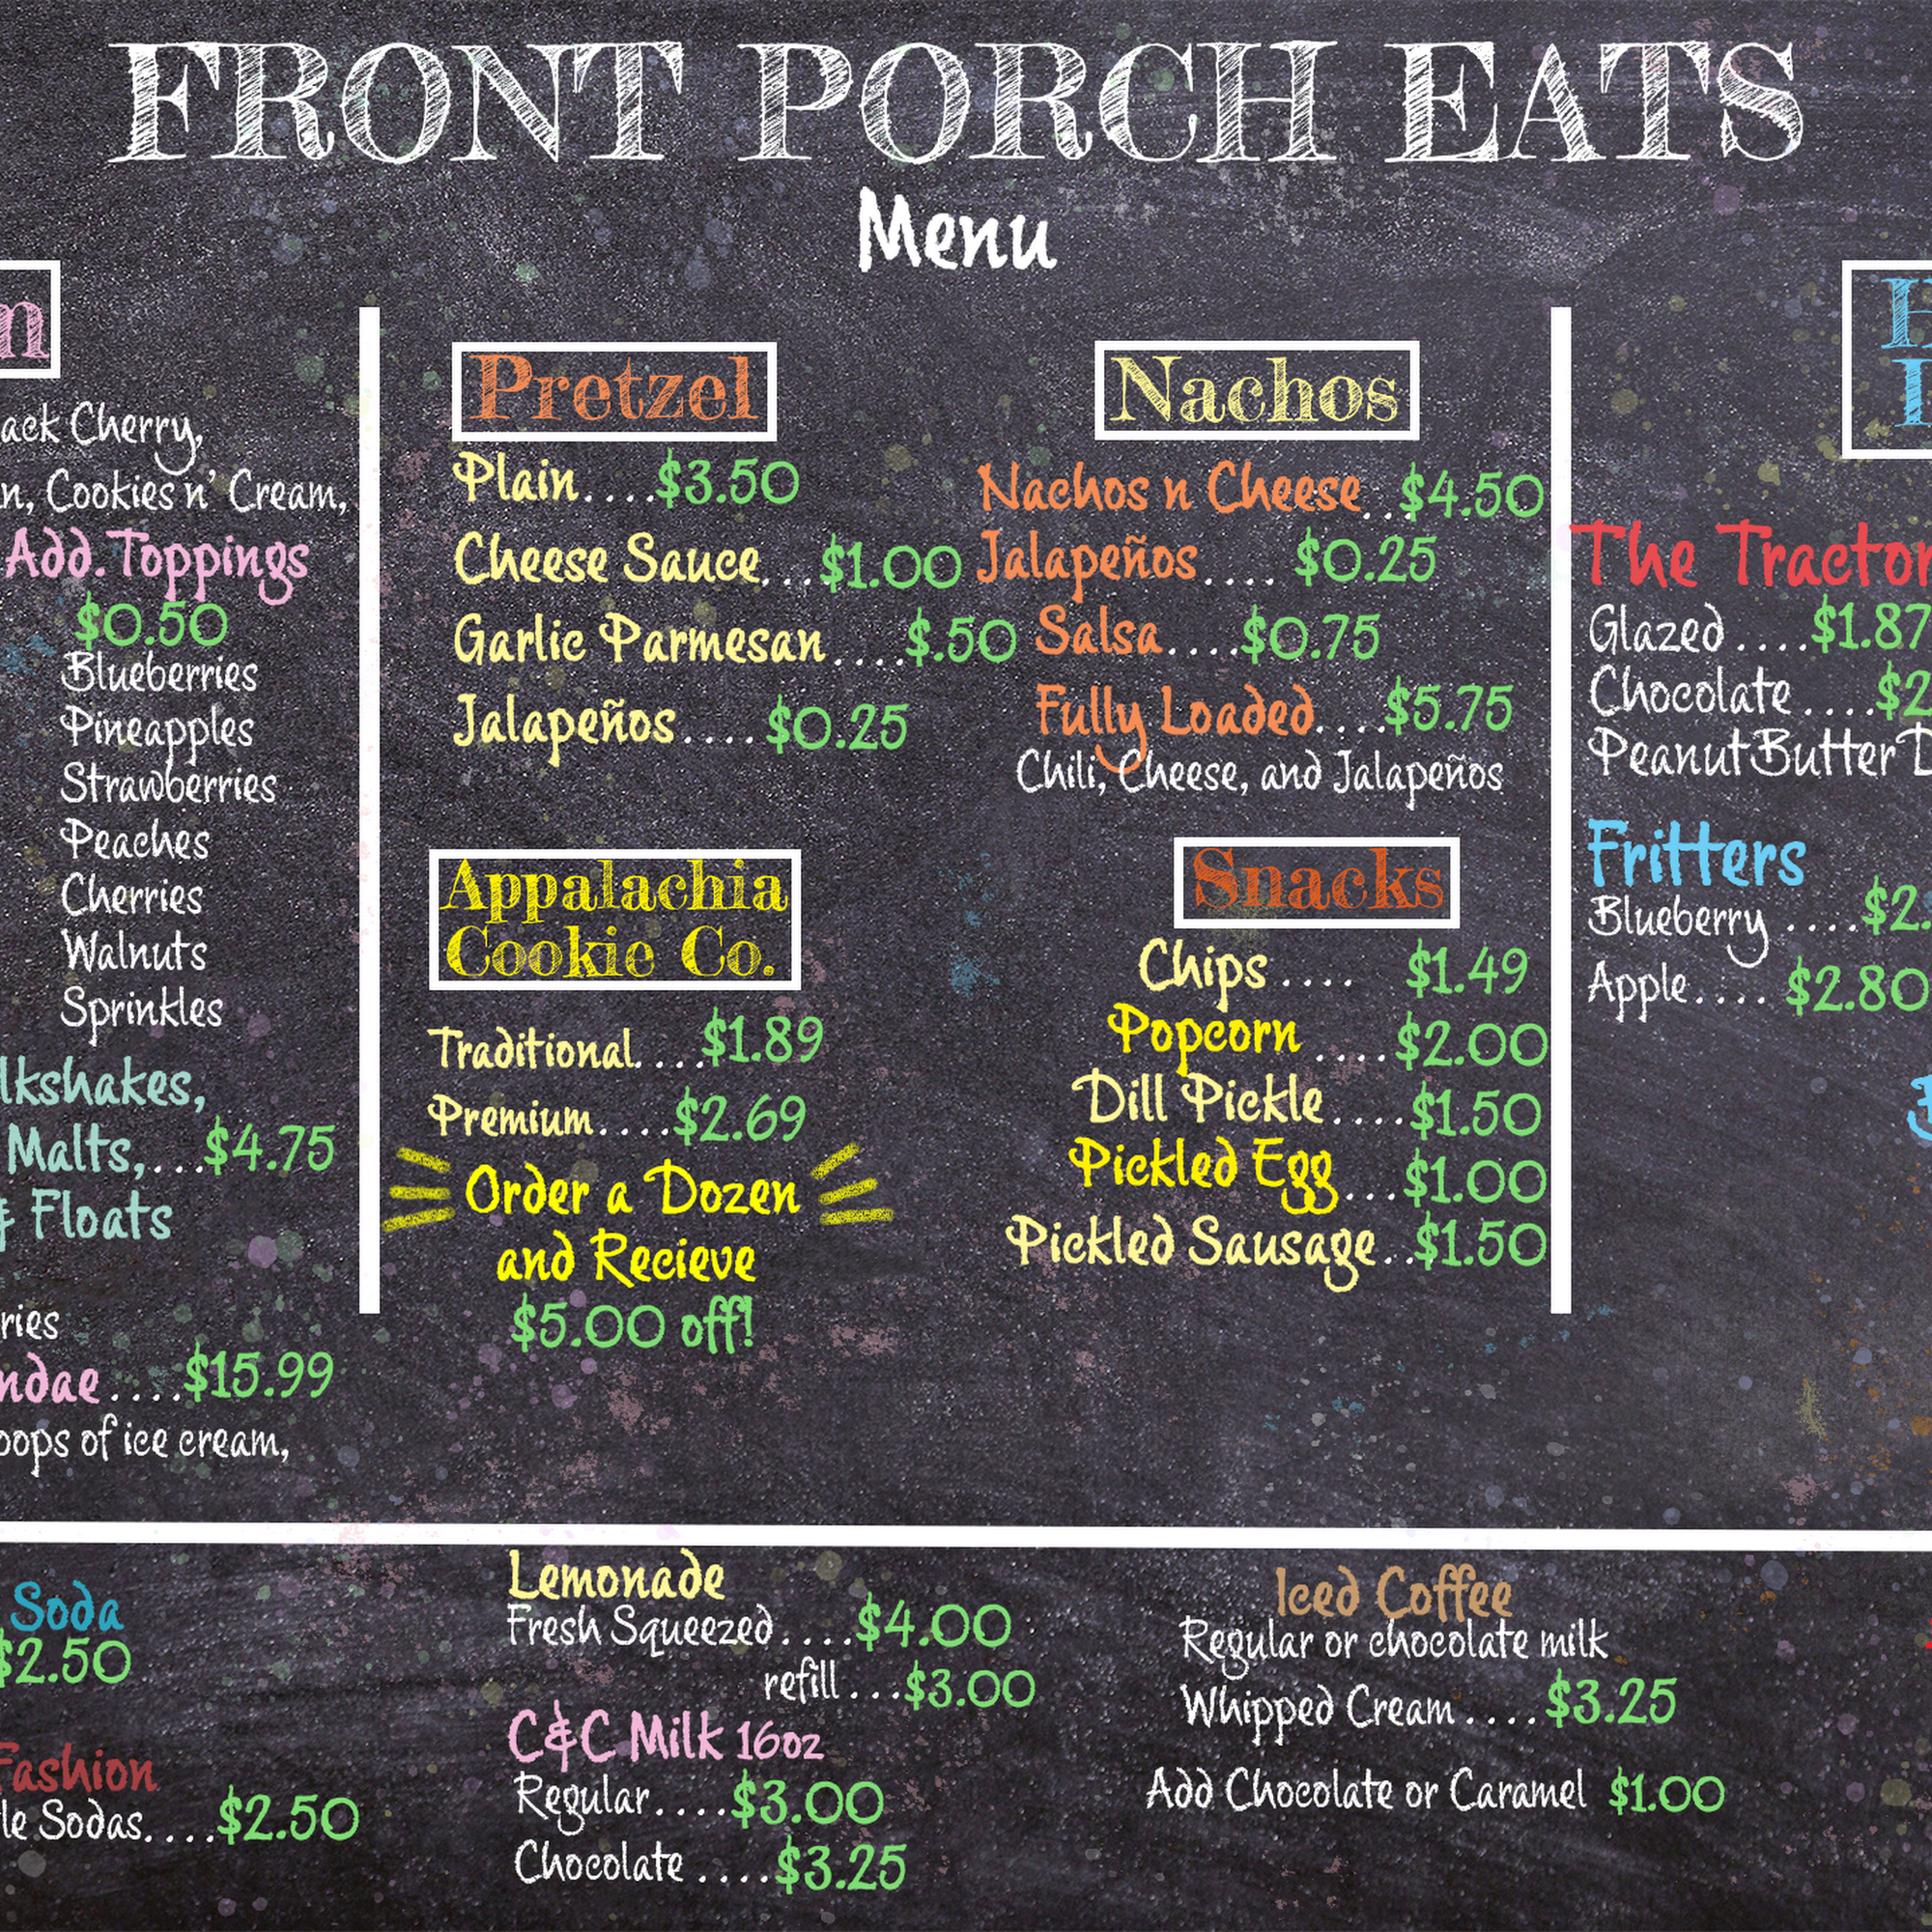 FRONT PORCH EATS
Menu
ack Cherry,
n, Cookies n' Cream,
Add. Toppings
$0.50
Blueberries
Pineapples
Strawberries
Peaches
Cherries
Walnuts
Sprinkles
lkshakes,
Malts,...$4.75
& Floats
ries
ndae....$15.99
oops of ice cream,
Pretzel
Plain....$3.50
Cheese Sauce...$1.00
Garlic Parmesan....$.50
Jalapeños....$0.25
Appalachia
Cookie Co.
Traditional....$1.89
Premium....$2.69
Order a Dozen
and Recieve
$5.00 off!
Nachos
Nachos n Cheese..$4.50
Jalapeños.... $0.25
Salsa....$0.75
Fully Loaded....$5.75
Chili, Cheese, and Jalapeños
Snacks
Chips.... $1.49
Popcorn....$2.00
Dill Pickle....$1.50
Pickled Egg...$1.00
Pickled Sausage..$1.50
The Tractor
Glazed....$1.87
Chocolate....$2
Peanut Butter
Fritters
Blueberry....$2.
Apple.... $2.80
Soda
$2.50
Fashion
le Sodas....$2.50
Lemonade
Fresh Squeezed....$4.00
refill...$3.00
C&C Milk 16oz
Regular....$3.00
Chocolate....$3.25
Iced Coffee
Regular or chocolate milk
Whipped Cream....$3.25
Add Chocolate or Caramel $1.00